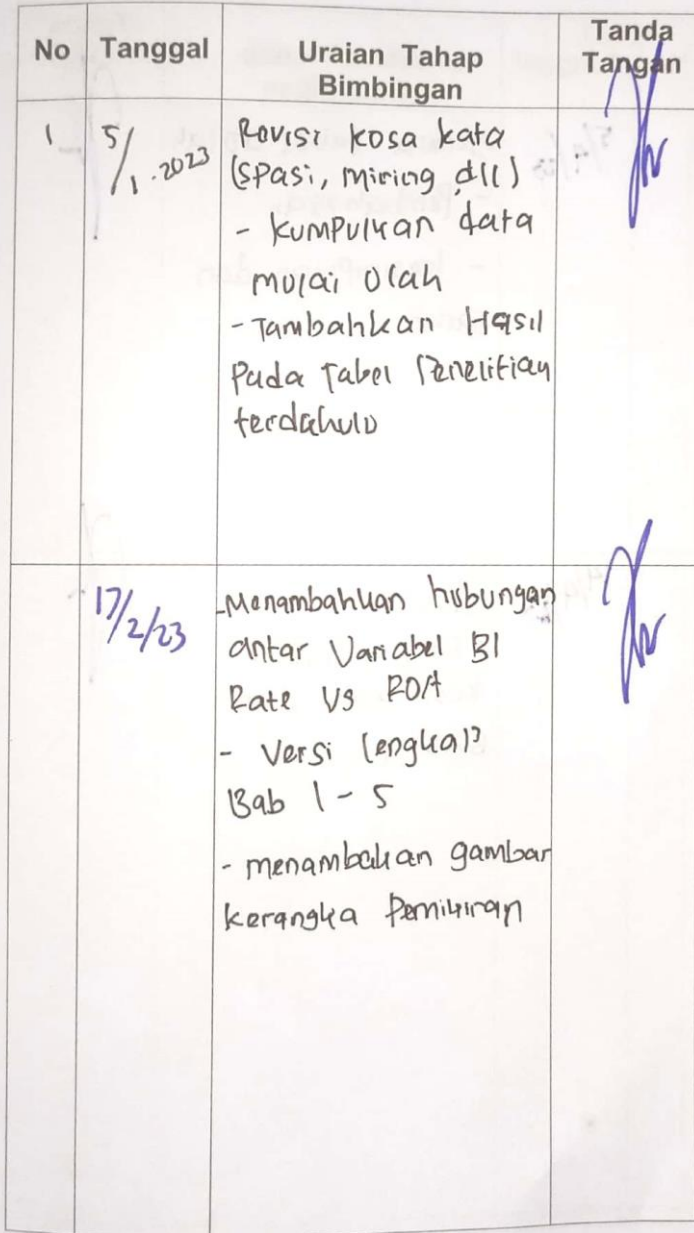 No Tanggal Uraian Tahap Bimbingan Tanda Tangan
1 5/1.2023 Revisi kosa kata
(spasi, miring dll)
- kumpulkan data
mulai olah
- Tambahkan Hasil
Pada Tabel Penelitian
terdahulu
17/2/23 - Menambahkan hubungan
antar Variabel BI
Rate VS ROA
- Versi lengkap
Bab 1 - 5
- menambahan gambar
kerangka Pemikiran